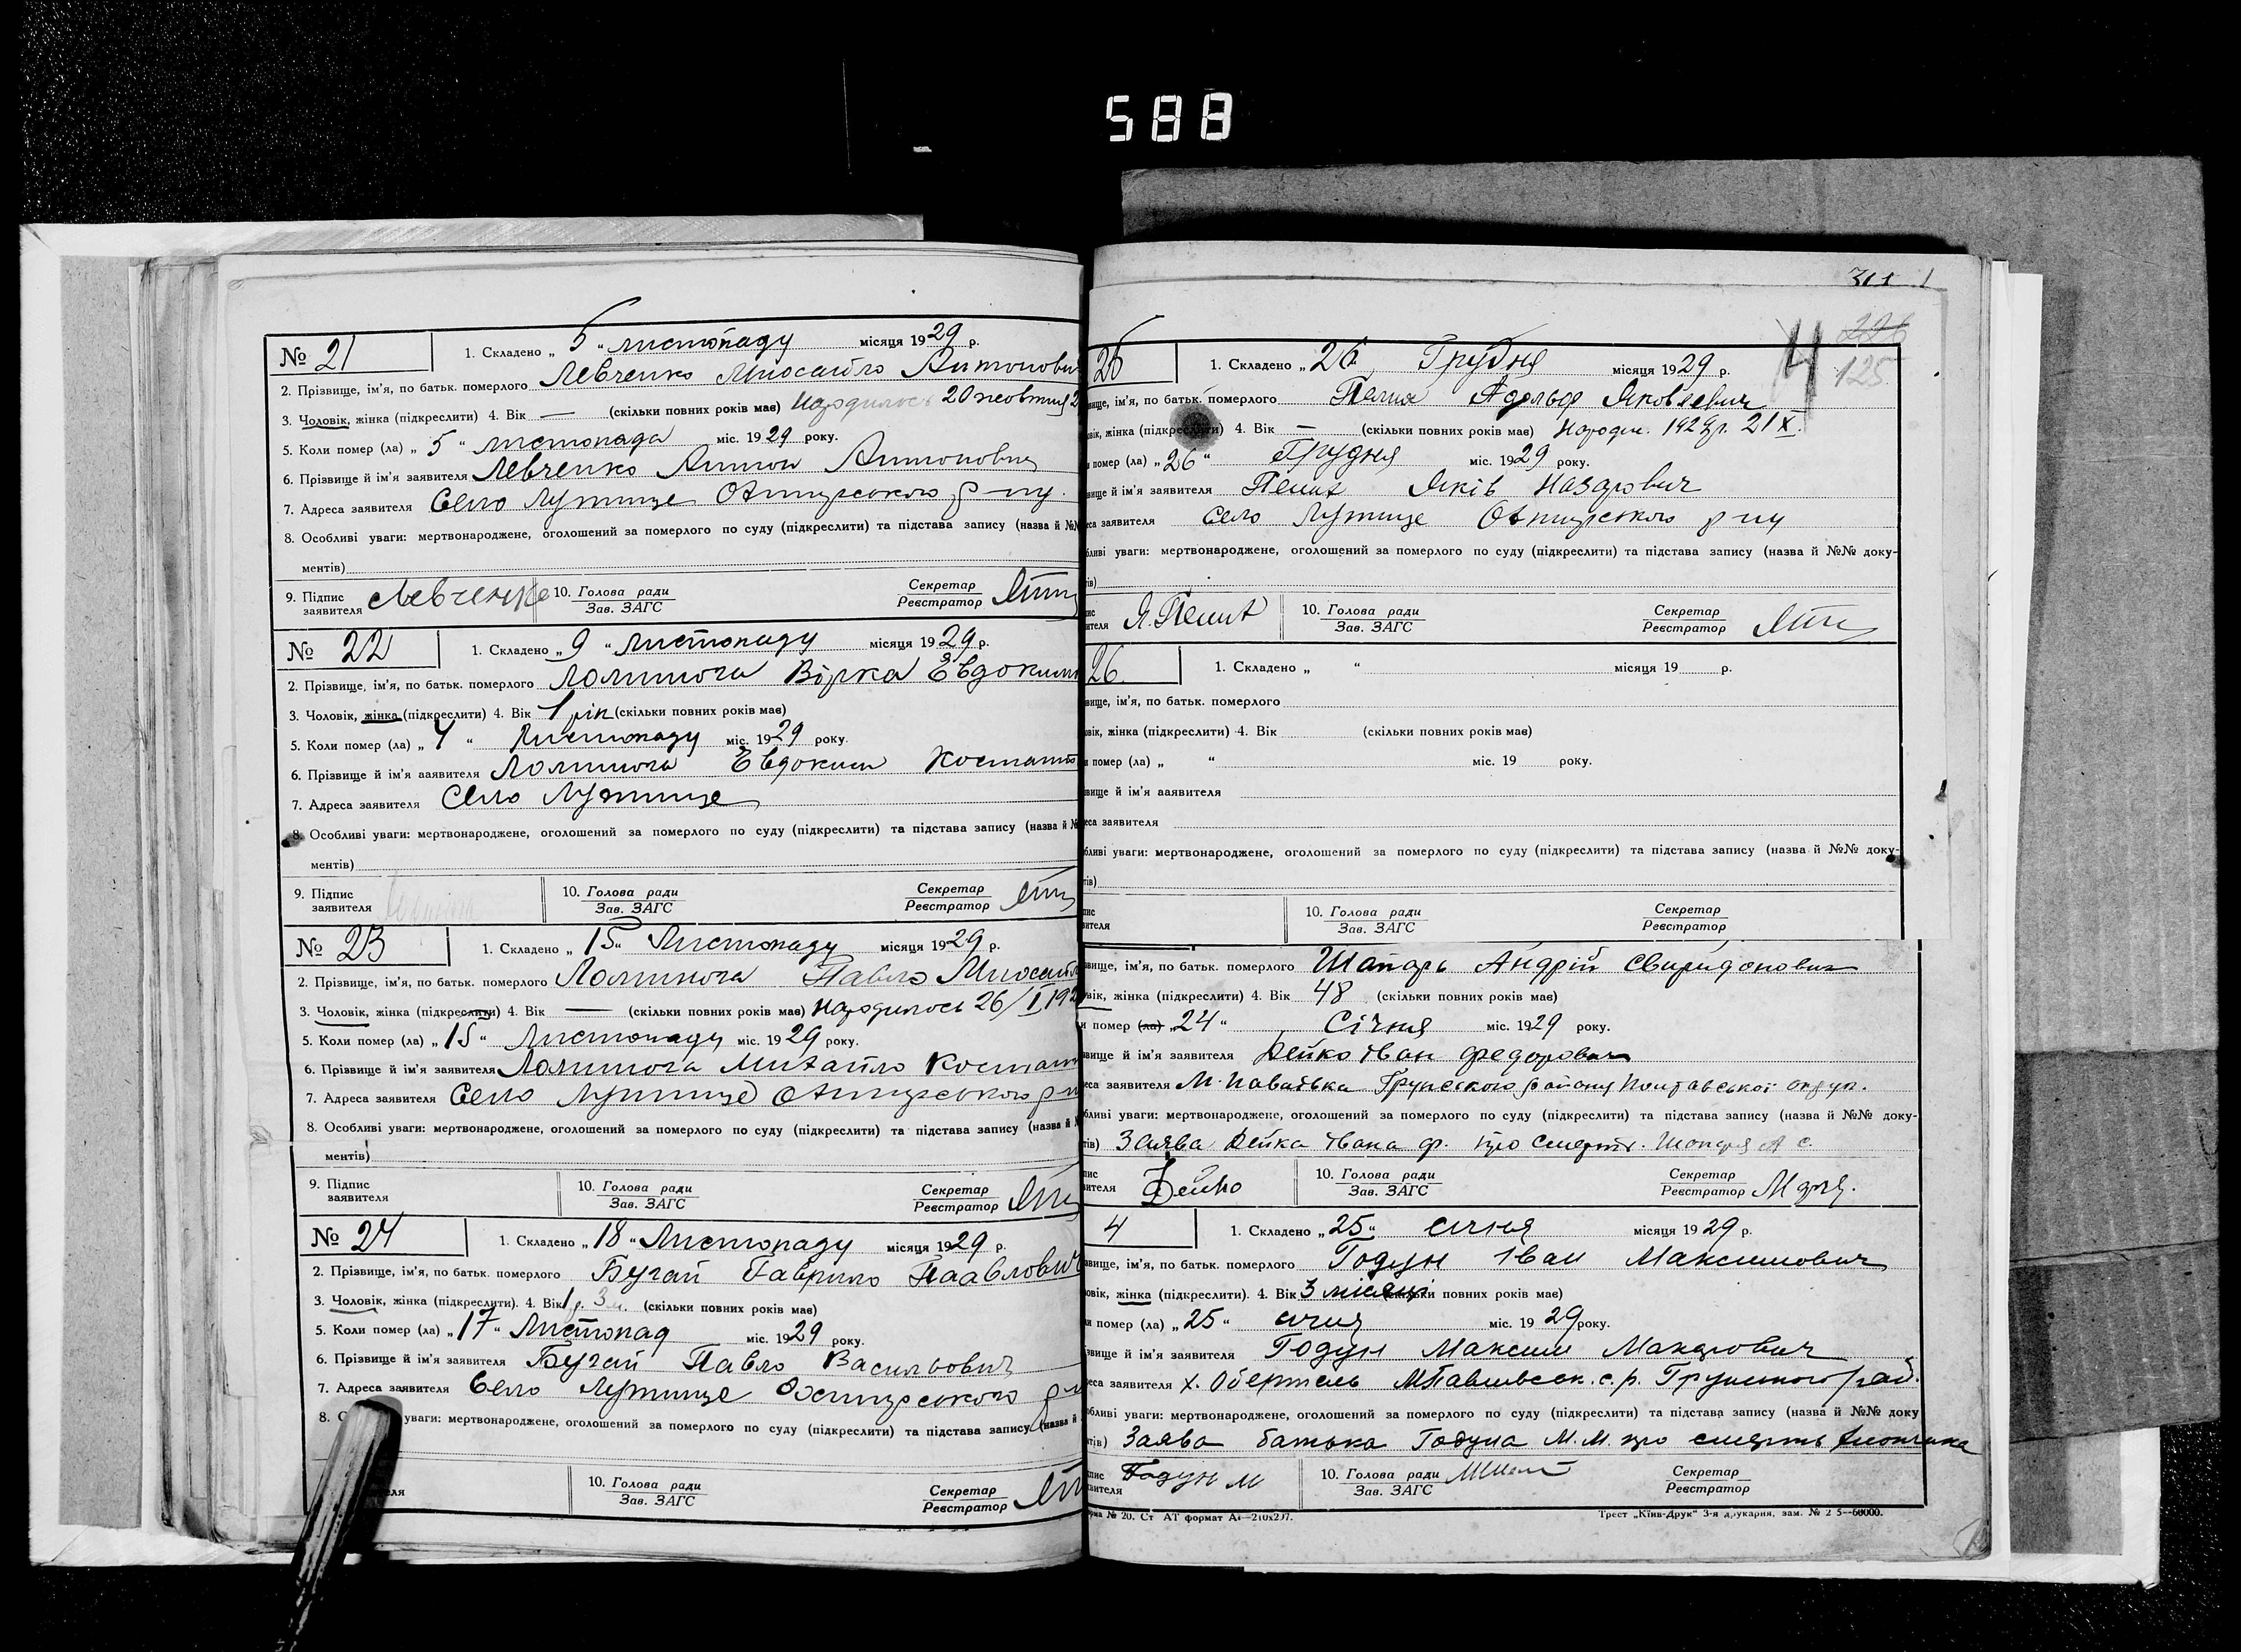 588
№ 21
1. Складено „ 5 " листопаду місяця 1929 р.
2. Прізвище, ім'я, по батьк. померлого Левченко Антонови
3. Чоловік, жінка (підкреслити) 4. Вік — (скільки повних років має) Народилось 20 жовтня 2
5. Коли помер (ла) „ 5 " листопада міс. 1929 року.
6. Прізвище й ім'я заявителя Левченко Антон Антонович
7. Адреса заявителя Село Лутище Охтирського р-ну.
8. Особливі уваги: мертвонароджене, оголошений за померлого по суду (підкреслити) та підстава запису (назва й №№
ментів)
9. Підпис заявителя Левченко 10. Голова ради Зав. ЗАГС Секретар Реєстратор
№ 22
1. Складено „ 9 " листопаду місяця 1929 р.
2. Прізвище, ім'я, по батьк. померлого Вірка Євдоким
3. Чоловік, жінка (підкреслити) 4. Вік 1 рік (скільки повних років має)
5. Коли помер (ла) „ 4 " Листопаду міс. 1929 року.
6. Прізвище й ім'я заявителя Євдоким
7. Адреса заявителя Село Лутище
8. Особливі уваги: мертвонароджене, оголошений за померлого по суду (підкреслити) та підстава запису (назва й №
ментів)
9. Підпис заявителя 10. Голова ради Зав. ЗАГС Секретар Реєстратор
№ 23
1. Складено „ 15 " Листопаду місяця 1929 р.
2. Прізвище, ім'я, по батьк. померлого Павло
3. Чоловік, жінка (підкреслити) 4. Вік — (скільки повних років має) Народилось 26/I 192
5. Коли помер (ла) „ 15 " Листопаду міс. 1929 року.
6. Прізвище й ім'я заявителя Михайло
7. Адреса заявителя Село Лутище Охтирського р-н
8. Особливі уваги: мертвонароджене, оголошений за померлого по суду (підкреслити) та підстава запису (назва й №
ментів)
9. Підпис заявителя 10. Голова ради Зав. ЗАГС Секретар Реєстратор
№ 24
1. Складено „ 18 " Листопаду місяця 1929 р.
2. Прізвище, ім'я, по батьк. померлого Бугай Гаврило Паавлович
3. Чоловік, жінка (підкреслити). 4. Вік 1 р. 3 м. (скільки повних років має)
5. Коли помер (ла) „ 17 " Листопад міс. 1929 року.
6. Прізвище й ім'я заявителя Бугай Павло Васильович
7. Адреса заявителя Село Лутище Охтирського р-н
8. уваги: мертвонароджене, оголошений за померлого по суду (підкреслити) та підстава запису (назва й
10. Голова ради Зав. ЗАГС Секретар Реєстратор
311
226
125
1. Складено „ 26 Грудня місяця 1929 р.
вище, ім'я, по батьк. померлого Адольф Яковлевич
вік, жінка (підкреслити) 4. Вік — (скільки повних років має) 21 X.
и помер (ла) „ 26 " Грудня міс. 1929 року.
вище й ім'я заявителя Яків
еса заявителя Село Лутище Охтирського р-ну
бливі уваги: мертвонароджене, оголошений за померлого по суду (підкреслити) та підстава запису (назва й №№ доку-
тів)
10. Голова ради Зав. ЗАГС Секретар Реєстратор
26.
1. Складено „ " місяця 19 р.
вище, ім'я, по батьк. померлого
овік, жінка (підкреслити) 4. Вік (скільки повних років має)
и помер (ла) „ " міс. 19 року.
вище й ім'я заявителя
еса заявителя
бливі уваги: мертвонароджене, оголошений за померлого по суду (підкреслити) та підстава запису (назва й №№ доку-
тів)
10. Голова ради Зав. ЗАГС Секретар Реєстратор
вище, ім'я, по батьк. померлого Шапарь Андрій Свиридонович
вік, жінка (підкреслити) 4. Вік 48 (скільки повних років має)
и помер (ла) „ 24 " Січня міс. 1929 року.
вище й ім'я заявителя Дейко Іван Федорович
еса заявителя М-Павлівка Грунського району Полтавської округ.
бливі уваги: мертвонароджене, оголошений за померлого по суду (підкреслити) та підстава запису (назва й №№ доку-
тів) Заява Дейка Івана Ф. про смерть Шапаря А С.
Дейко 10. Голова ради Зав. ЗАГС Секретар Реєстратор
4
1. Складено „ 25 " січня місяця 1929 р.
вище, ім'я, по батьк. померлого Годун Іван Максимович
овік, жінка (підкреслити). 4. Вік 3 місяці (скільки повних років має)
и помер (ла) „ 25 " січня міс. 1929 року.
вище й ім'я заявителя Годун Максим Макарович
еса заявителя х. М Павлівськ. с. р. Грунського рай.
бливі уваги: мертвонароджене, оголошений за померлого по суду (підкреслити) та підстава запису (назва й №№ доку
тів) Заява батька Годуна М. М. про смерть хлопчика
Годун М 10. Голова ради Зав. ЗАГС Секретар Реєстратор
рма № 20. Ст АТ формат А4—210х297. Трест „Київ-Друк" 3-я друкарня, зам. № 2 5--60000.